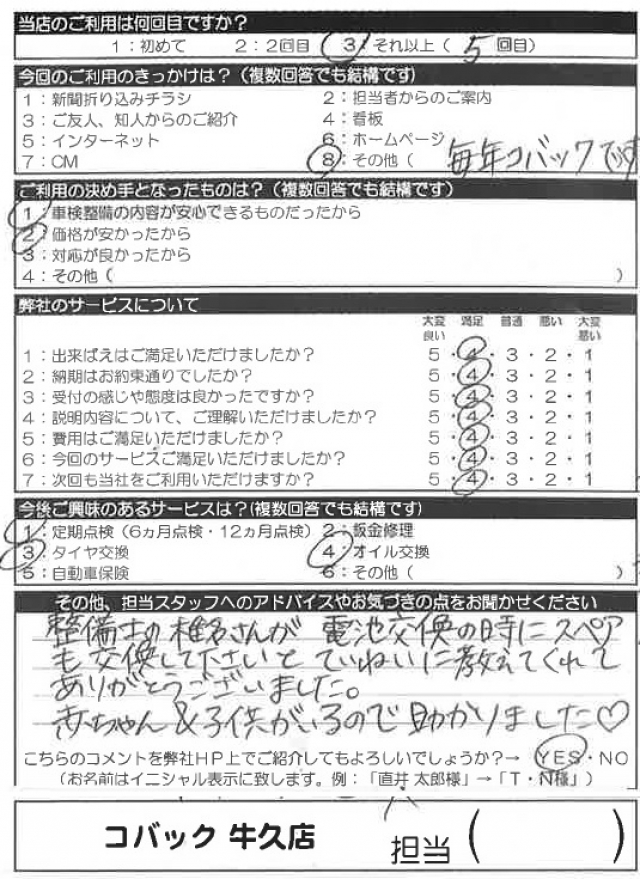 当店のご利用は何回目ですか?
1:初めて 2:2回目 3:それ以上( 5 回目)
今回のご利用のきっかけは?(複数回答でも結構です)
1:新聞折り込みチラシ 2:担当者からのご案内
3:ご友人、知人からのご紹介 4:看板
5:インターネット 6:ホームページ
7:CM 8:その他( 毎年コバックです
ご利用の決め手となったものは?(複数回答でも結構です)
1:車検整備の内容が安心できるものだったから
2:価格が安かったから
3:対応が良かったから
4:その他( )
弊社のサービスについて
大変良い 満足 普通 悪い 大変悪い
1:出来ばえはご満足いただけましたか? 5・4・3・2・1
2:納期はお約束通りでしたか? 5・4・3・2・1
3:受付の感じや態度は良かったですか? 5・4・3・2・1
4:説明内容について、ご理解いただけましたか? 5・4・3・2・1
5:費用はご満足いただけましたか? 5・4・3・2・1
6:今回のサービスご満足いただけましたか? 5・4・3・2・1
7:次回も当社をご利用いただけますか? 5・4・3・2・1
今後ご興味のあるサービスは?(複数回答でも結構です)
1:定期点検(6ヵ月点検・12ヵ月点検) 2:鈑金修理
3:タイヤ交換 4:オイル交換
5:自動車保険 6:その他( )
その他、担当スタッフへのアドバイスやお気づきの点をお聞かせください
整備士の椎名さんが 電池交換の時にスペア
も交換して下さいと ていねいに教えてくれて
ありがとうございました。
赤ちゃん&子供がいるので助かりました♡
こちらのコメントを弊社HP上でご紹介してもよろしいでしょうか?→ YES・NO
(お名前はイニシャル表示に致します。例:「直井 太郎様」→「T・N様」)
コバック 牛久店 担当( )